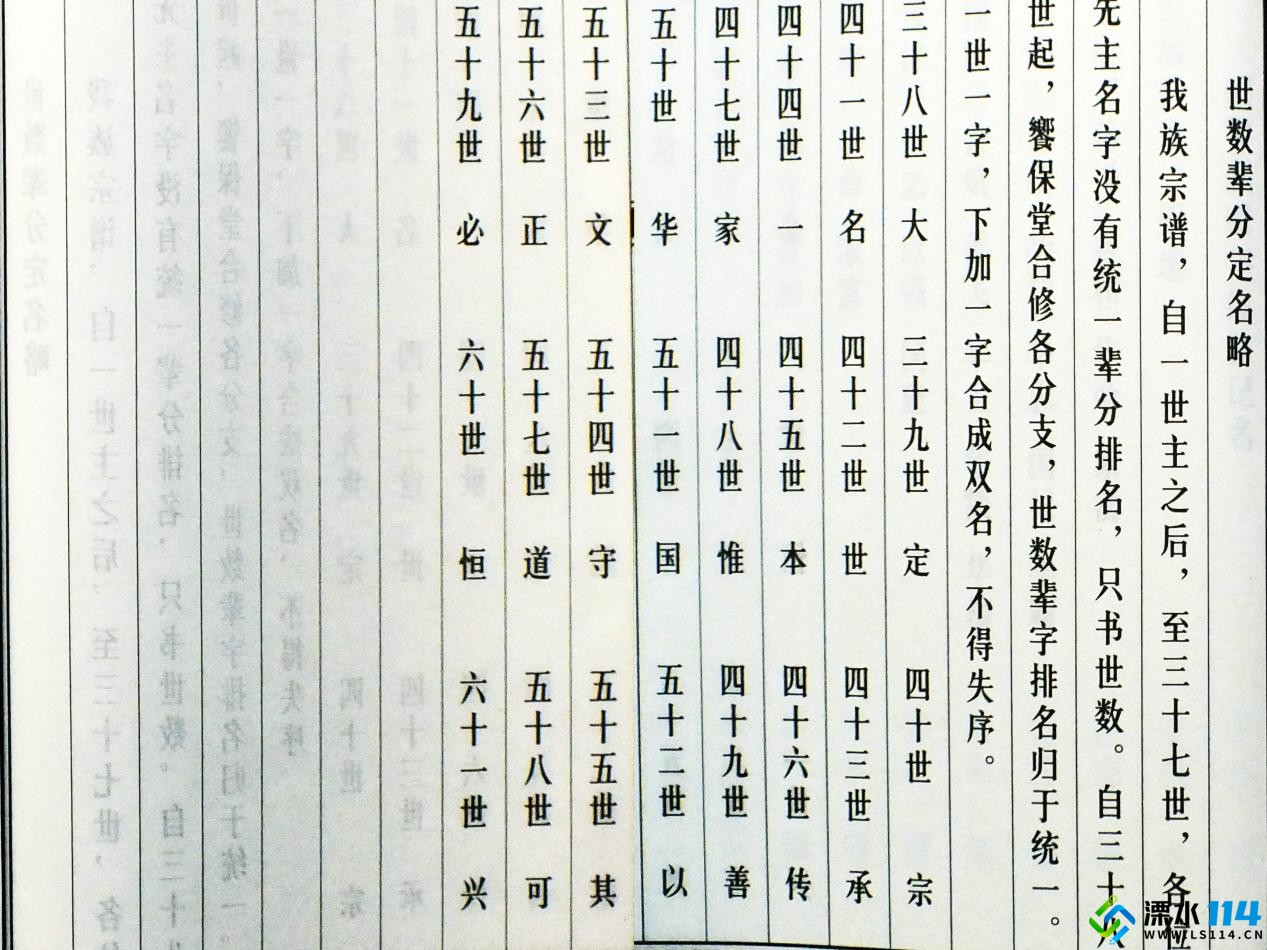 世数辈分定名略
我族宗谱，自一世主之后，至三十七世，各
先主名字没有统一辈分排名，只书世数。自三十
世起，飨保堂合修各分支，世数辈字排名归于统一。
一世一字，下加一字合成双名，不得失序。
三十八世 大 三十九世 定 四十世 宗
四十一世 名 四十二世 世 四十三世 承
四十四世 一 四十五世 本 四十六世 传
四十七世 家 四十八世 惟 四十九世 善
五十世 华 五十一世 国 五十二世 以
五十三世 文 五十四世 守 五十五世 其
五十六世 正 五十七世 道 五十八世 可
五十九世 必 六十世 恒 六十一世 兴
溧水114
WWW.LS114.CN